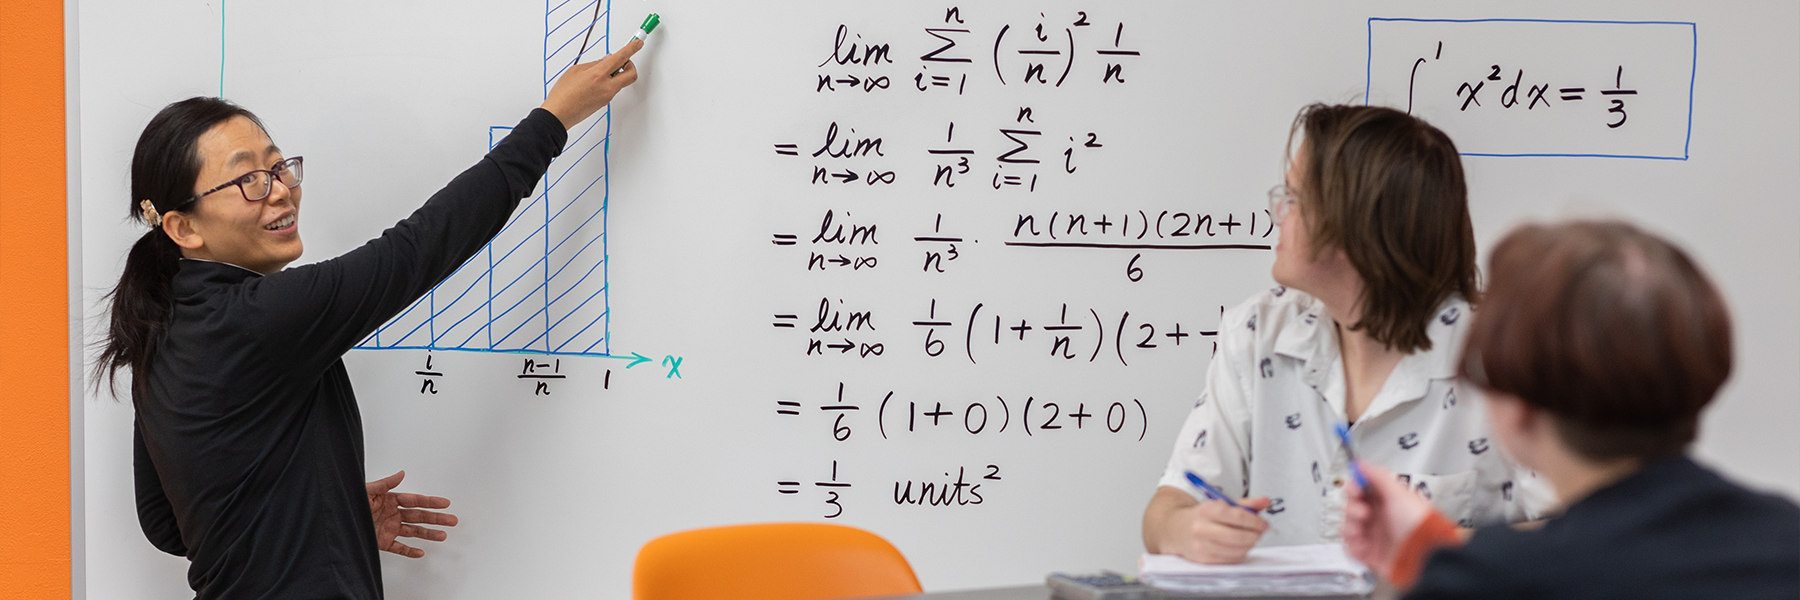 i/n (n-1)/n 1 x
lim n→∞ ∑ i=1 n (i/n)² 1/n
= lim n→∞ 1/n³ ∑ i=1 n i²
= lim n→∞ 1/n³ · n(n+1)(2n+1)/6
= lim n→∞ 1/6 (1+1/n)(2+
= 1/6 (1+0)(2+0)
= 1/3 units²
∫ 1 x²dx = 1/3